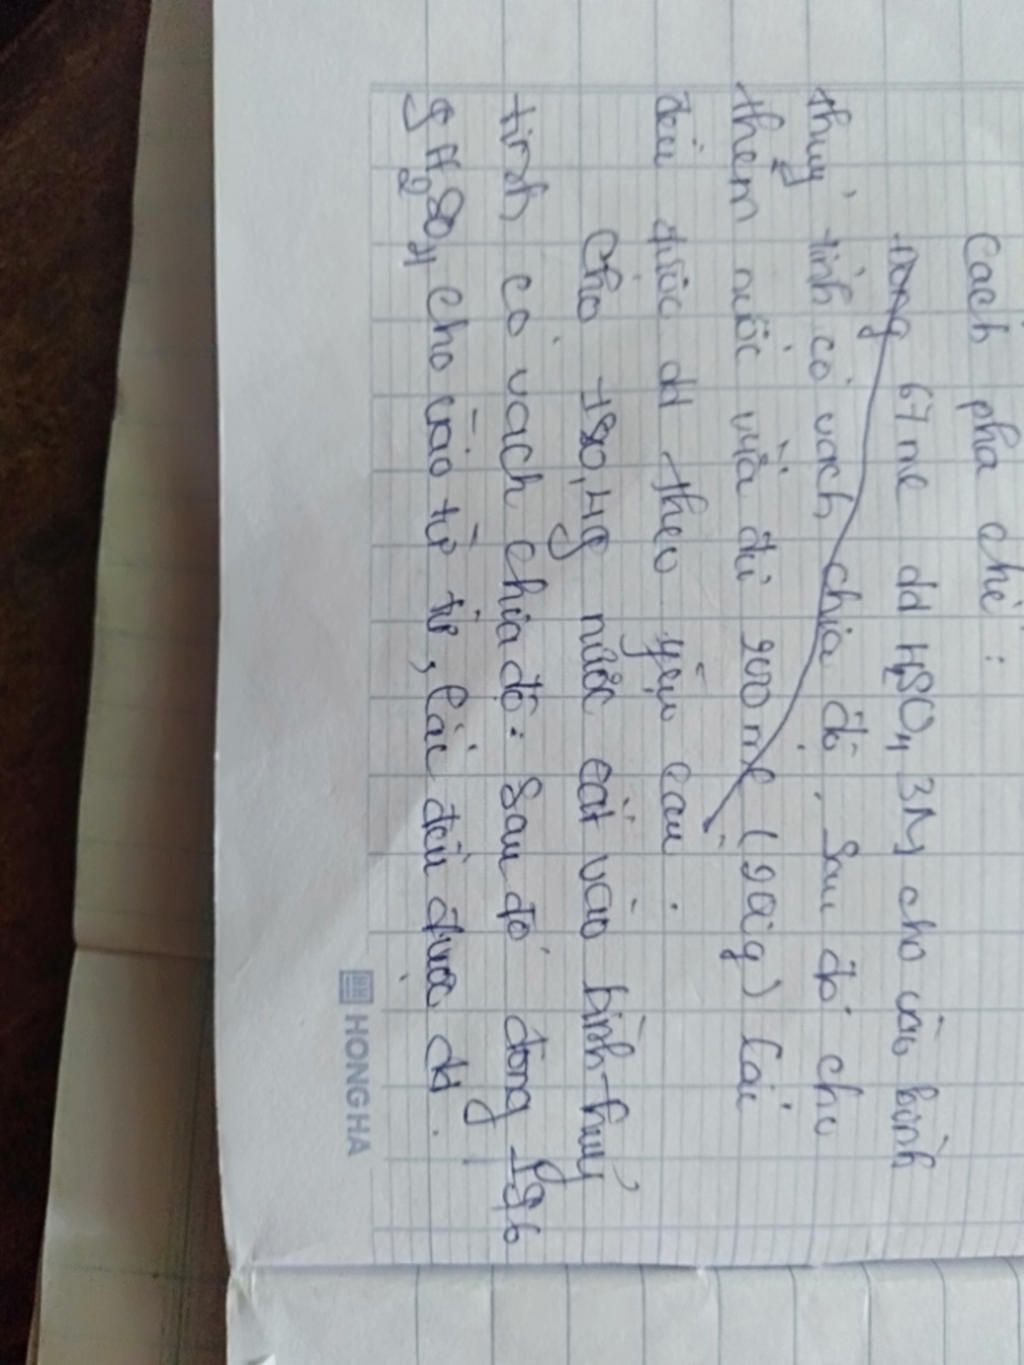 Cách pha chế :
Đong 67 ml dd H₂SO₄ 3M cho vào bình
thuỷ tinh có vạch chia độ, sau đó cho
thêm nước vừa đủ 200 ml (202g) lắc
đều được dd theo yêu cầu .
Cho 180,4g nước cất vào bình thuỷ
tinh có vạch chia độ. Sau đó đong 19,6
g H₂SO₄ cho vào từ từ, lắc đều được dd .
HONG HA